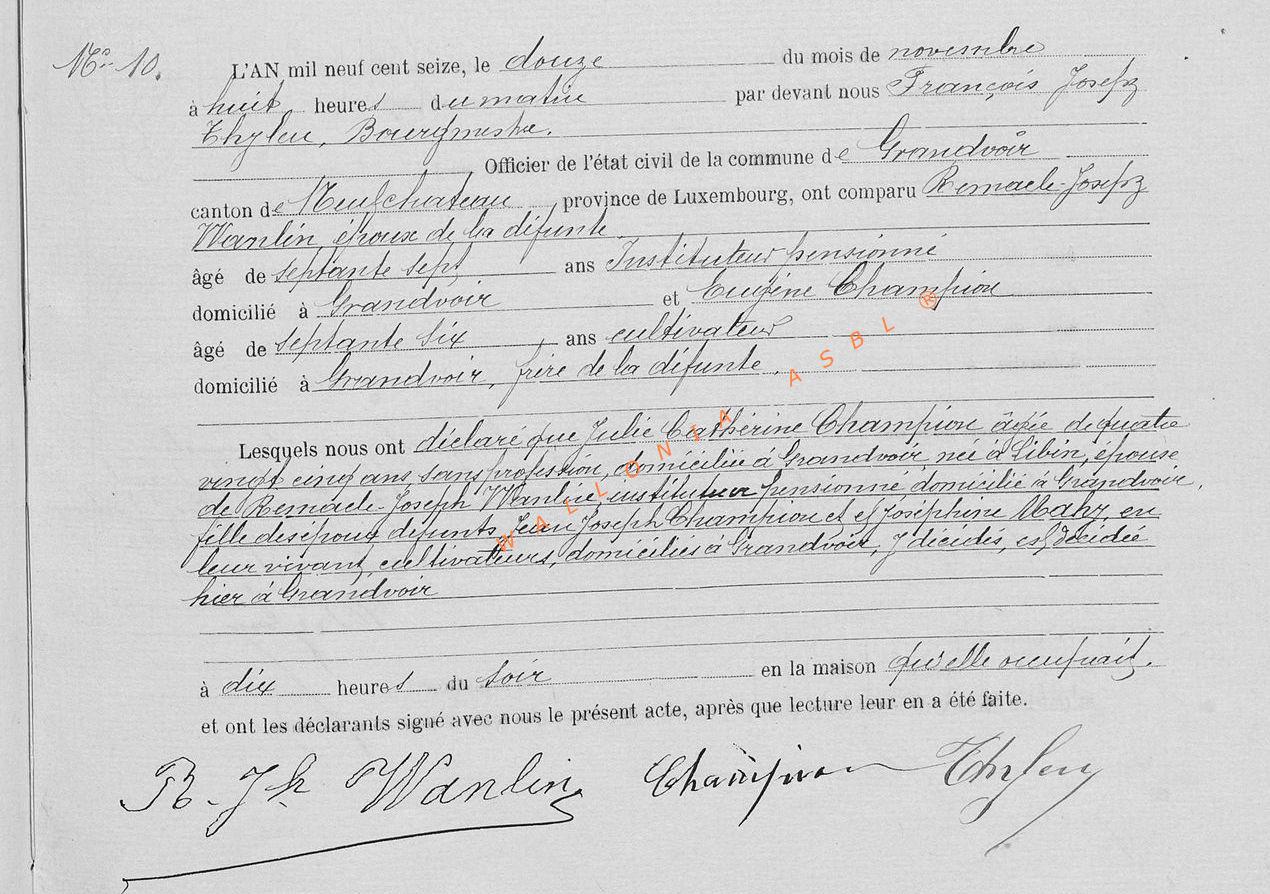 No 10.
L'AN mil neuf cent seize, le douze du mois de novembre
à huit heures du matin par devant nous François Joseph
Thyleu, Bourgmestre.
Officier de l'état civil de la commune de Grandvoir
canton de Neufchateau province de Luxembourg, ont comparu Remacle-Joseph
Wanlin, époux de la défunte
âgé de septante sept ans Instituteur pensionné
domicilié à Grandvoir et Eugène Champion
âgé de septante six ans cultivateur
domicilié à Grandvoir, frère de la défunte.
Lesquels nous ont déclaré que Julie Cathérine Champion âgée de quatre
vingt cinq ans, sans profession, domiciliée à Grandvoir née à Libin, épouse
de Remacle-Joseph Wanlin, instituteur pensionné domicilié à Grandvoir,
fille des époux défunts Jean Joseph Champion et Joséphine Mahy, en
leur vivant, cultivateurs, domiciliés à Grandvoir, y décédés, est décédée
hier à Grandvoir
à dix heures du soir en la maison qu'elle occupait.
et ont les déclarants signé avec nous le présent acte, après que lecture leur en a été faite.
R. Jh Wanlin Champion
WALLONIA ASBL ®